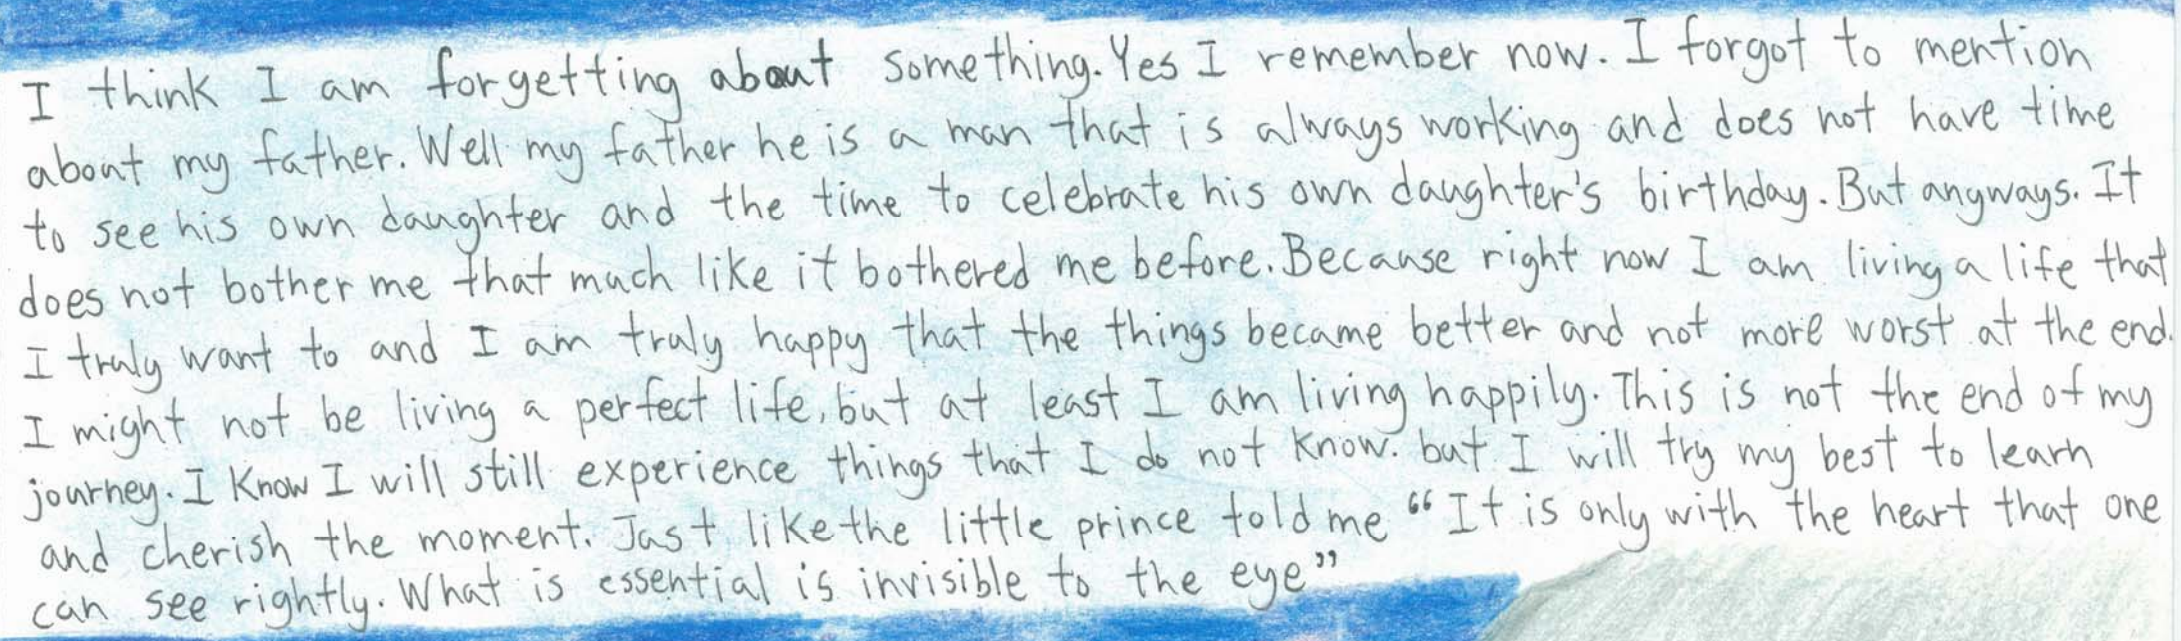 I think I am forgetting about something. Yes I remember now. I forgot to mention
about my father. Well my father he is a man that is always working and does not have time
to see his own daughter and the time to celebrate his own daughter's birthday. But anyways. It
does not bother me that much like it bothered me before. Because right now I am living a life that
I truly want to and I am truly happy that the things became better and not more worst at the end.
I might not be living a perfect life, but at least I am living happily. This is not the end of my
journey. I know I will still experience things that I do not know. but I will try my best to learn
and cherish the moment. Just like the little prince told me “It is only with the heart that one
can see rightly. What is essential is invisible to the eye”